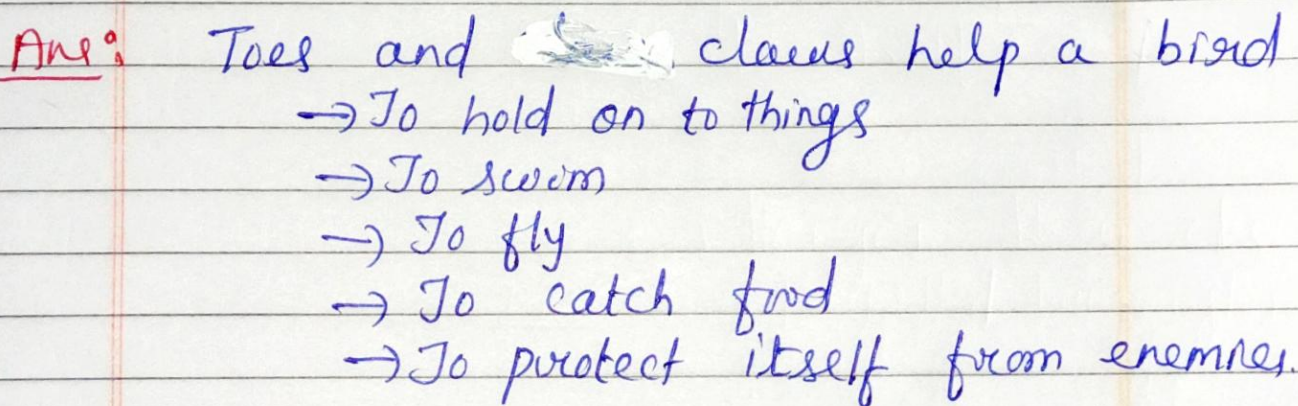 Ans: Toes and claws help a bird
→ To hold on to things
→ To swim
→ To fly
→ To catch food
→ To protect itself from enemies.